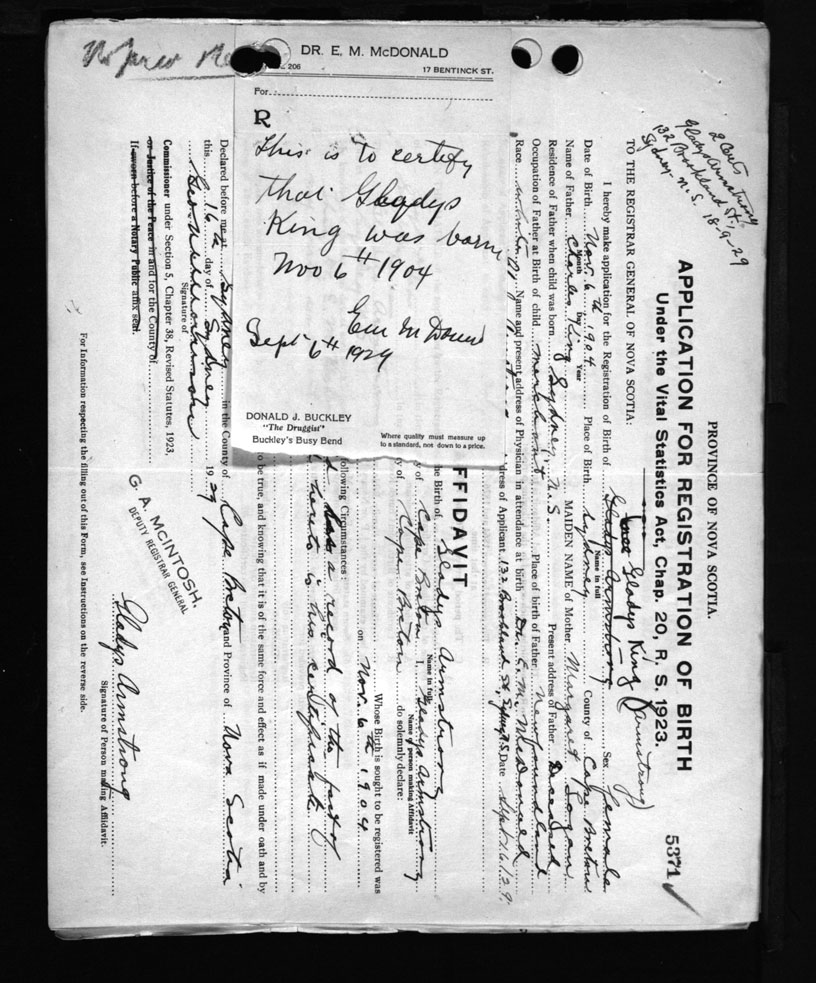 No prev Rec
DR. E. M. McDONALD
206 17 BENTINCK ST.
For
℞
This is to certify
that Gladys
King was born
Nov 6th 1904
Sept 6th 1929
DONALD J. BUCKLEY
"The Druggist"
Buckley's Busy Bend
Where quality must measure up
to a standard, not down to a price.
2 Certs
Gladys Armstrong
132 Brookland St.,
Sydney. N.S. 18-9-29
PROVINCE OF NOVA SCOTIA.
APPLICATION FOR REGISTRATION OF BIRTH
5371
Under the Vital Statistics Act, Chap. 20, R. S. 1923.
TO THE REGISTRAR GENERAL OF NOVA SCOTIA:
Gladys King (Armstrong)
I hereby make application for the Registration of Birth of Gladys Armstrong Sex female
Name in full
Date of Birth Nov. 6th 1924 Place of Birth Sydney County of Cape Breton
Month Day Year
Name of Father Charles King MAIDEN NAME of Mother Margaret Logan
Residence of Father when child was born Sydney, N.S. Present address of Father Deceased
Occupation of Father at Birth of child Merchant Place of birth of Father Newfoundland
Race Name and present address of Physician in attendance at birth Dr. E. M. McDonald
dress of Applicant 132 Brookland St, Sydney N.S. Date Sept. 16/29.
FFIDAVIT
he Birth of Gladys Armstrong
Name in full
y of Cape Breton I, Gladys Armstrong
Name of person making Affidavit
y of Cape Breton do solemnly declare:
Whose Birth is sought to be registered was
on Nov. 6th 1904
ollowing Circumstances:
a record of the fact of
hereto is his certificate
o be true, and knowing that it is of the same force and effect as if made under oath and by
Declared before me at Sydney in the County of Cape Breton and Province of Nova Scotia
this 16th day of Sydney 1929
Signature of
Commissioner under Section 5, Chapter 38, Revised Statutes, 1923,
or Justice of the Peace in and for the County of
If sworn before a Notary Public affix seal.
G. A. McINTOSH,
DEPUTY REGISTRAR GENERAL
Gladys Armstrong
Signature of Person making Affidavit.
For Information respecting the filling out of this Form, see Instructions on the reverse side.